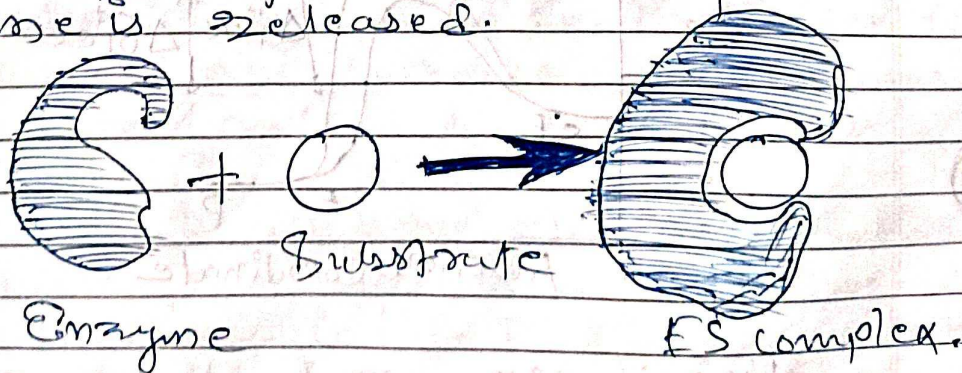 me is released.
+
Substrate
Enzyme
ES complex.